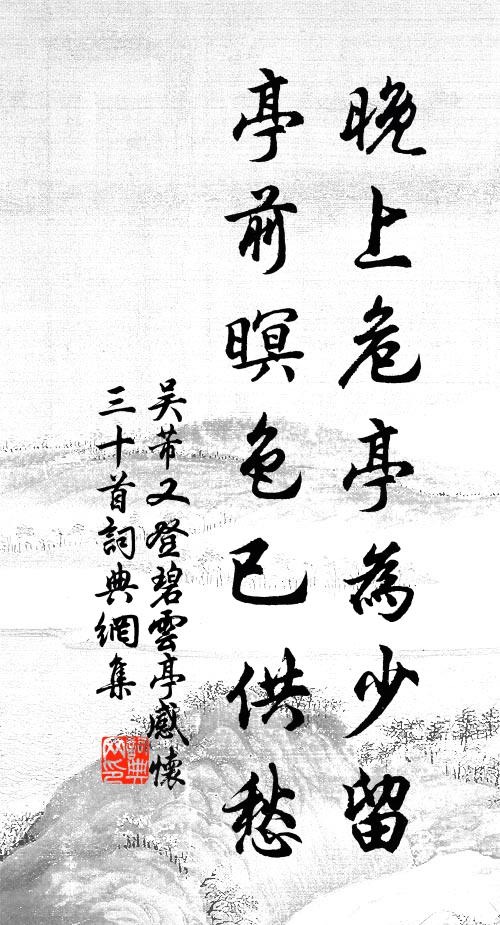 晚上危亭為少留
亭前暝色已供愁
吴芾又登碧雲亭感懷
三十首詞典網集